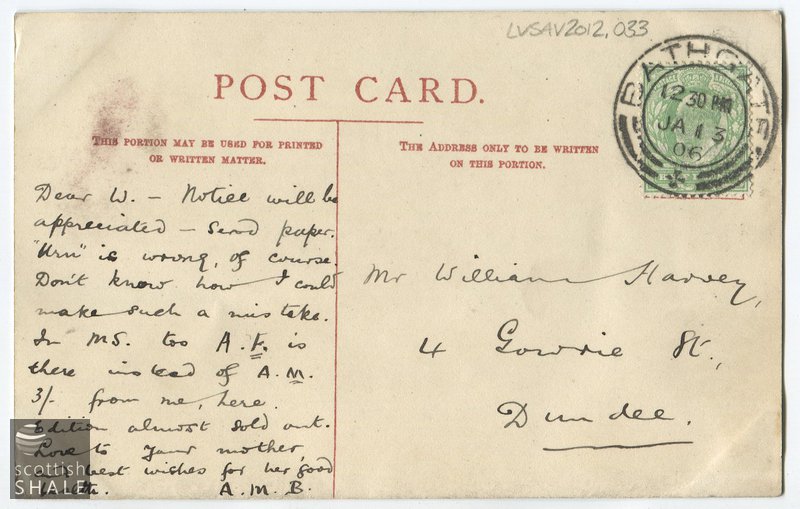 LVSAV2012,033
POST CARD.
BATHGATE
12 30 PM
JA 13
06
THIS PORTION MAY BE USED FOR PRINTED
OR WRITTEN MATTER.
THE ADDRESS ONLY TO BE WRITTEN
ON THIS PORTION.
Dear W. – Notice will be
appreciated – send paper.
"Urn" is wrong, of course.
Don't know how I could
make such a mistake.
In MS. too A.F. is
there instead of A.M.
3/- from me, here.
Edition almost sold out.
Love to your mother,
best wishes for her good
A.M.B.
Mr William Harvey,
4 Gowrie St.,
Dundee.
scottish
SHALE